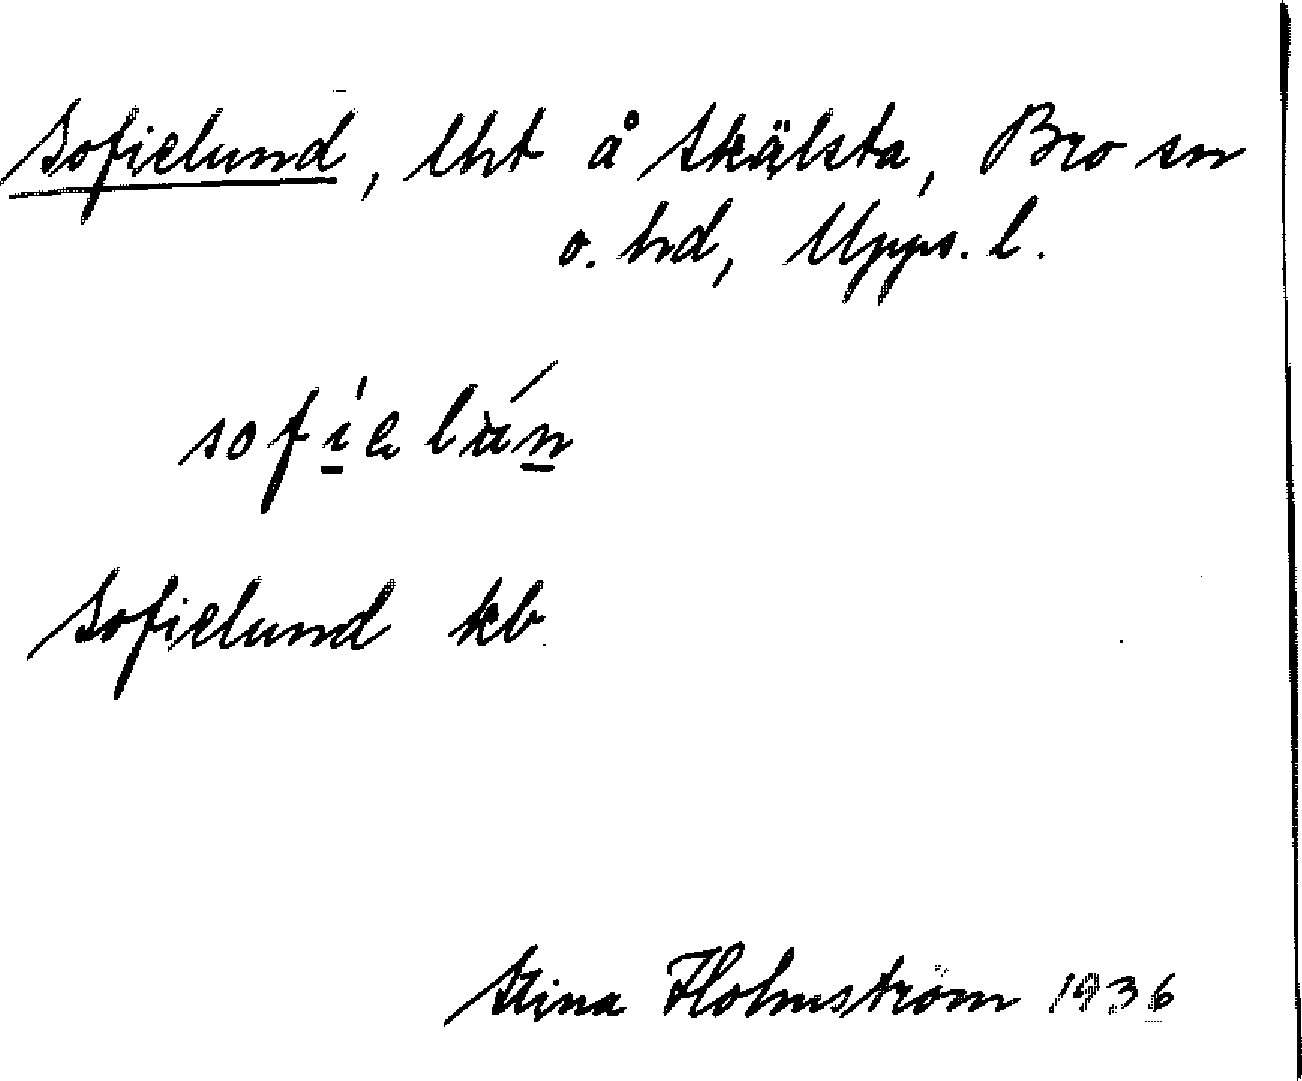 Sofielund, lht å Skälsta, Bro sn
o. hd, Upps. l.
sofielún
Sofielund kb
Stina Holmström 1936